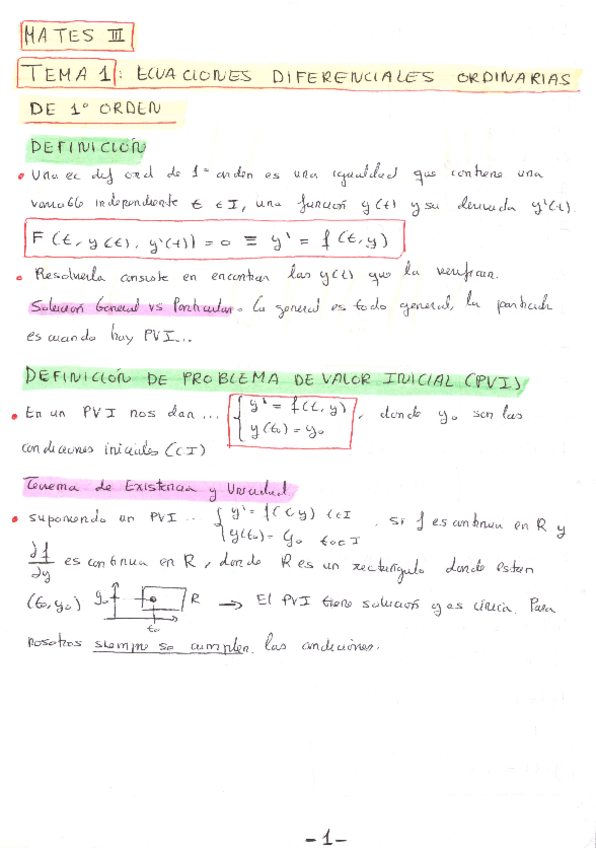 MATES III
TEMA 1: ECUACIONES DIFERENCIALES ORDINARIAS
DE 1º ORDEN
DEFINICIÓN
• Una ec dif ord de 1º orden es una igualdad que contiene una
variable independiente t ∈ I, una función y(t) y su derivada y'(t).
F(t, y(t), y'(t)) = 0 ≡ y' = f(t,y)
• Resolverla consiste en encontrar las y(t) que la verifican.
Solución General vs Particular. La general es todo general, la particular
es cuando hay PVI...
DEFINICIÓN DE PROBLEMA DE VALOR INICIAL (PVI)
• En un PVI nos dan ... { y' = f(t,y) , donde y₀ son las
y(t₀) = y₀
condiciones iniciales (CI)
Teorema de Existencia y Unicidad
• suponiendo un PVI .. { y' = f(t,y) t∈I . Si f es continua en R y
y(t₀) = y₀ t₀∈I
∂f/∂y es continua en R, donde R es un rectángulo donde estan
(t₀,y₀) y₀ R → El PVI tiene solución y es única. Para
t₀
nosotros siempre se cumplen las condiciones.
-1-